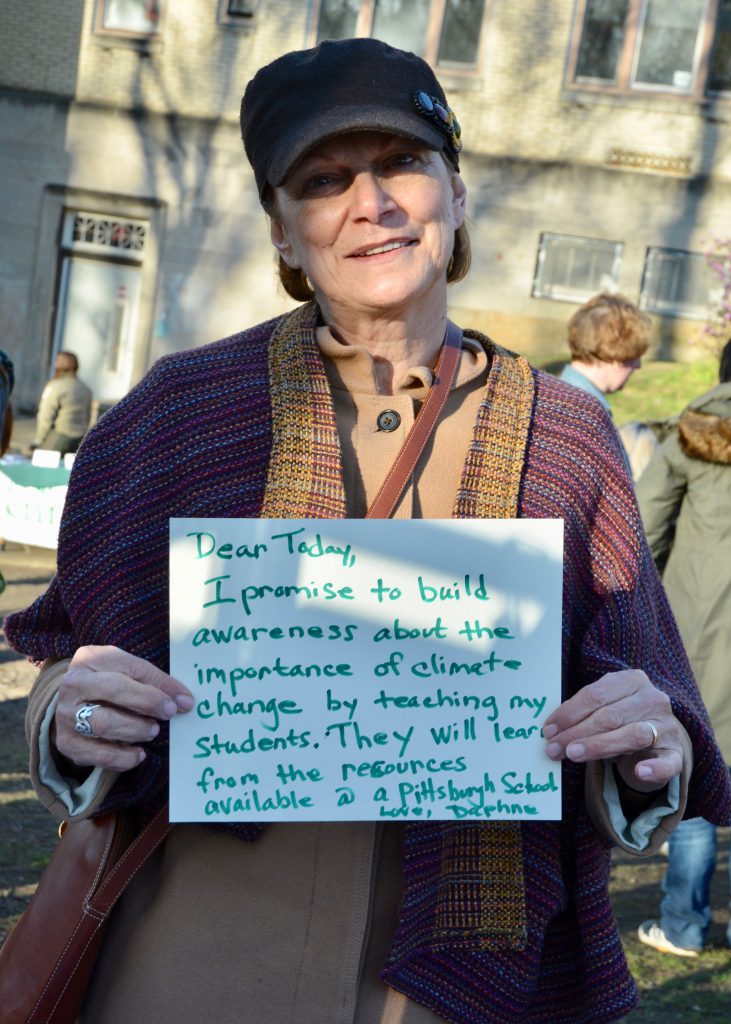 Dear Today,
I promise to build
awareness about the
importance of climate
change by teaching my
students. They will learn
from the resources
available @ a Pittsburgh School
Love, Daphne